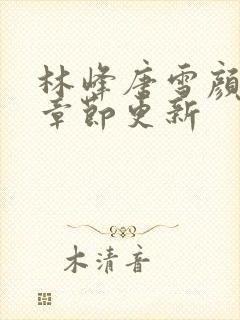 林峰唐雪顏
章節更新
木清音